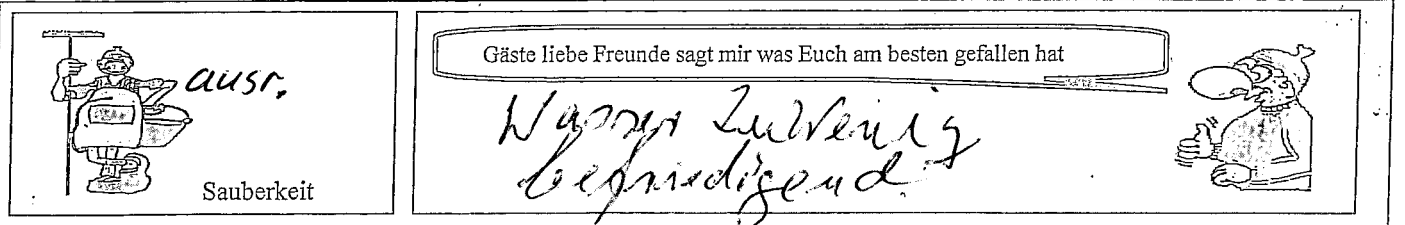 ausr.
Sauberkeit
Gäste liebe Freunde sagt mir was Euch am besten gefallen hat
Wasser zu wenig
befriedigend